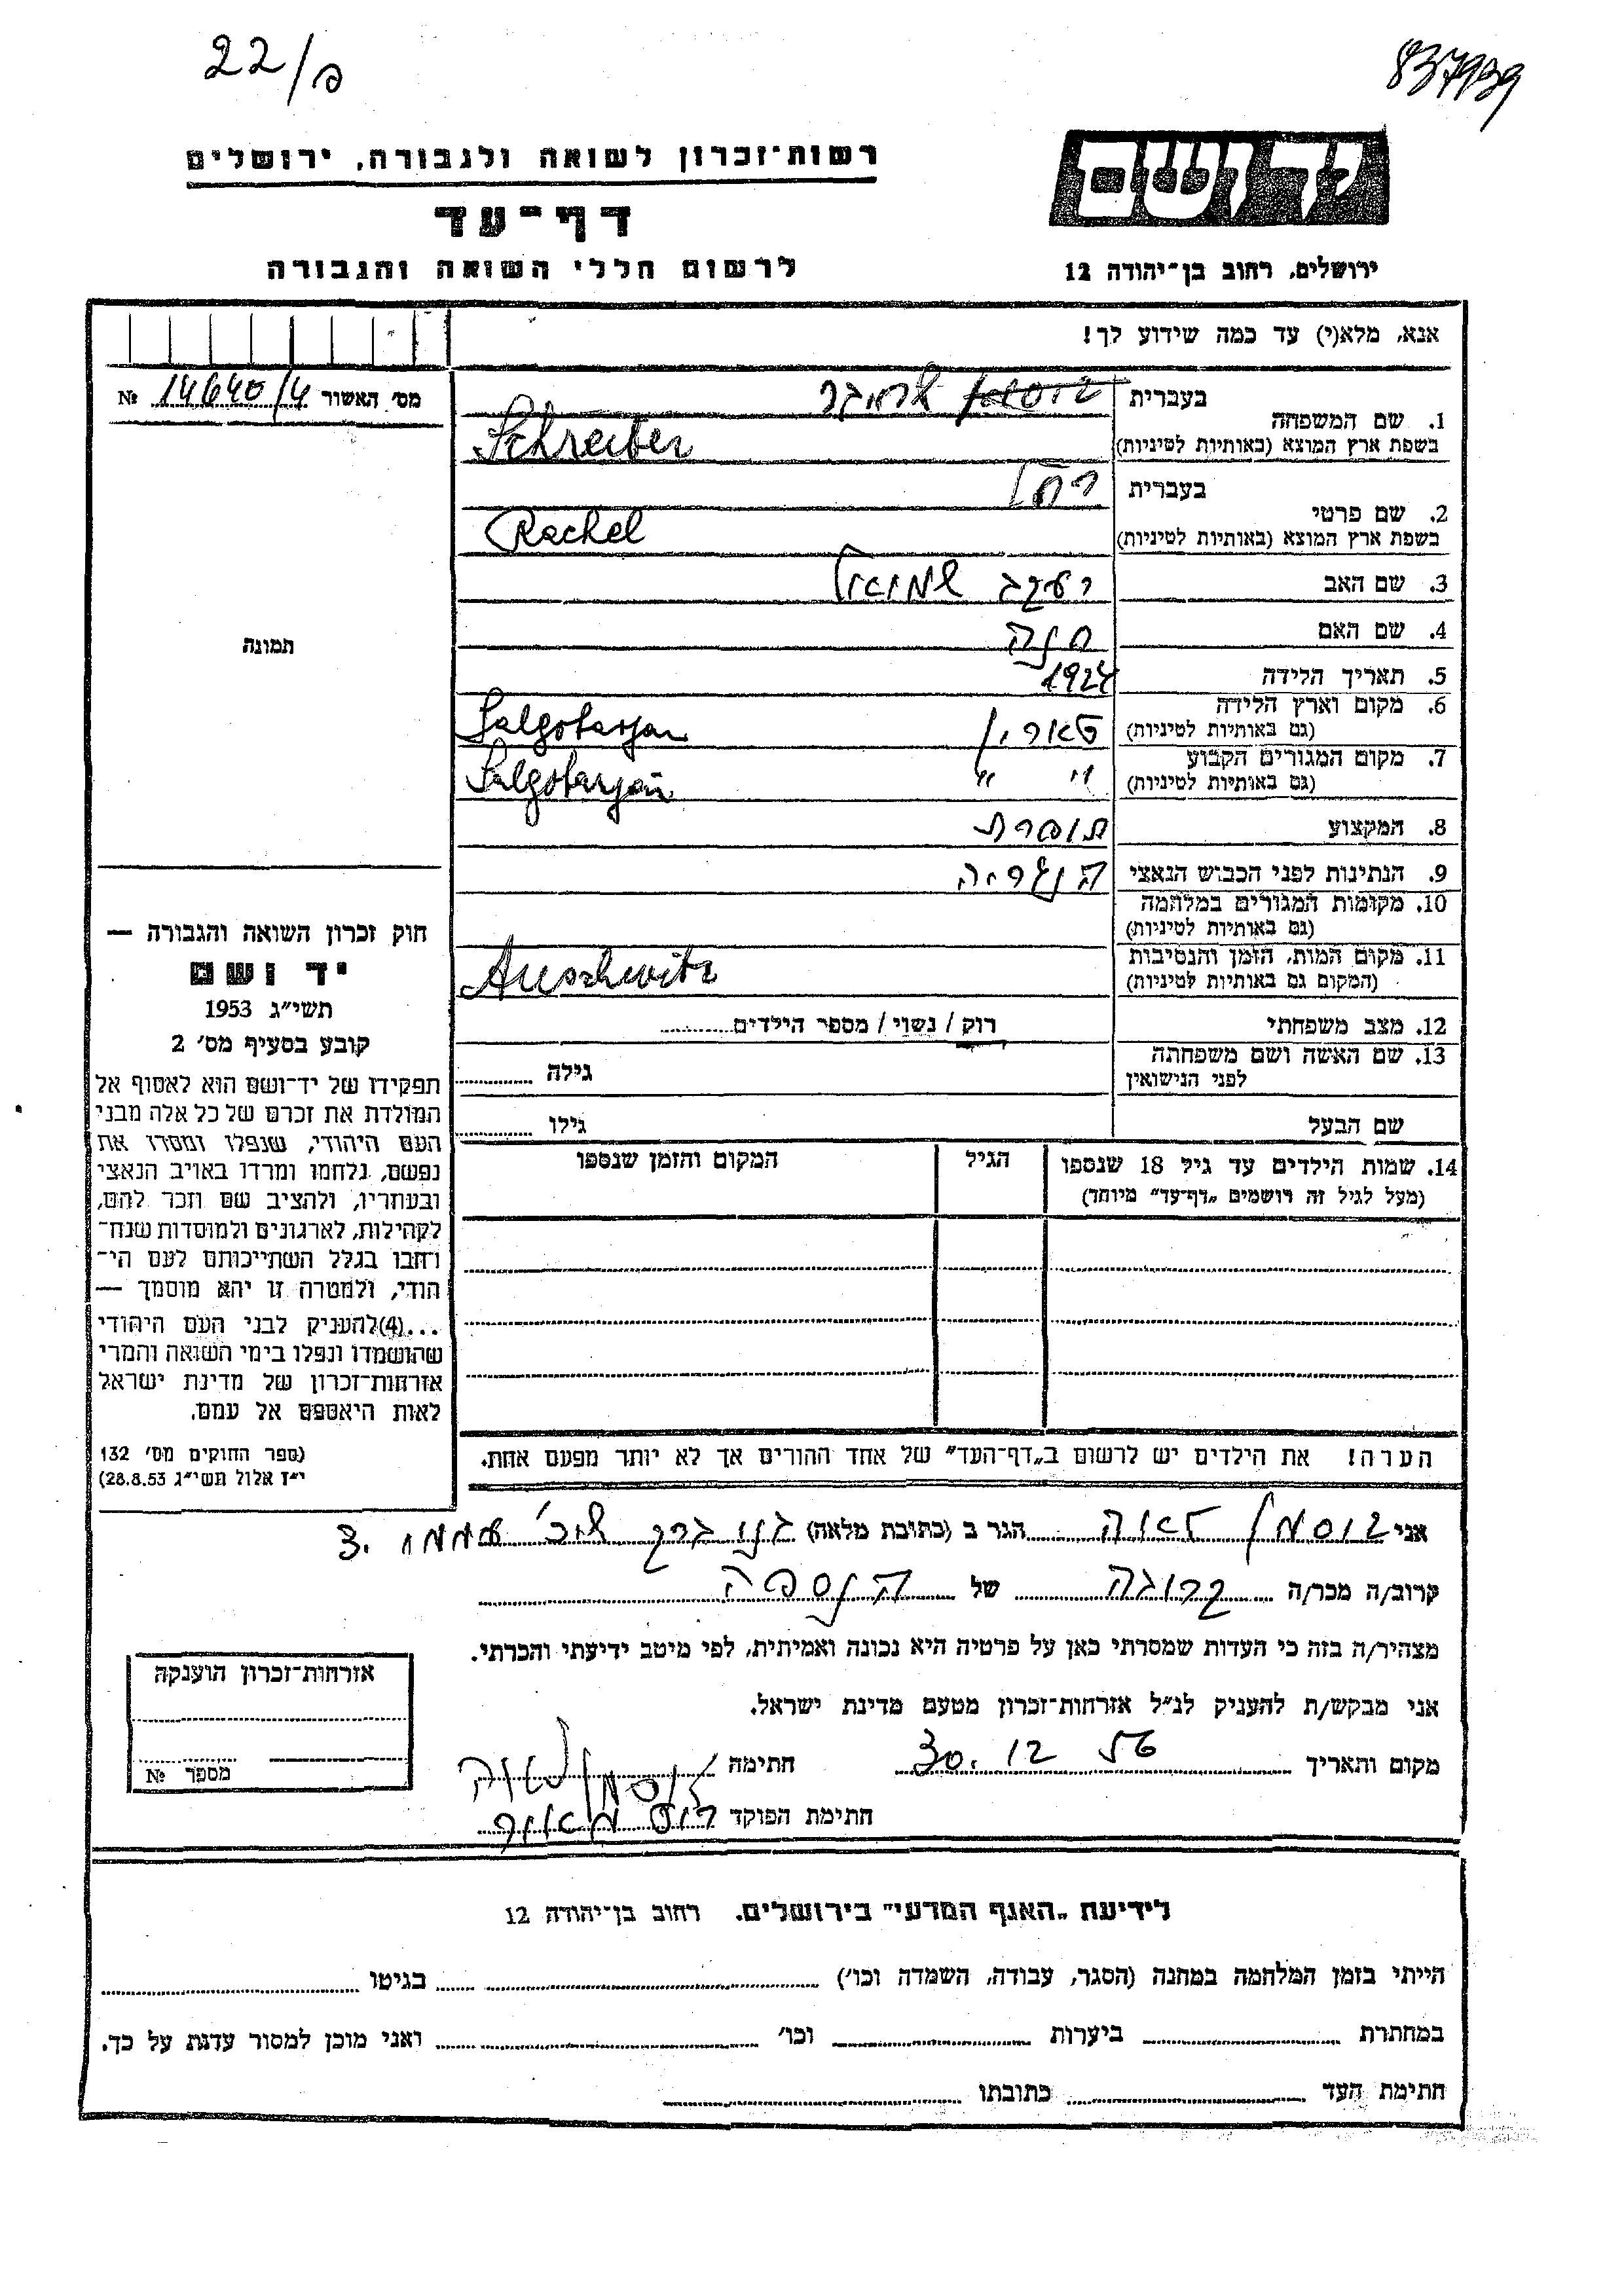 22/ס
837939
רשות־זכרון לשואה ולגבורה, ירושלים
יד ושם
דף־עד
לרשום חללי השואה והגבורה
ירושלים, רחוב בן־יהודה 12
אנא, מלא(י) עד כמה שידוע לך!
מס׳ האשור 14640/4 №
1. שם המשפחה
בעברית שרייבר
בשפת ארץ המוצא (באותיות לטיניות) Schreiber
2. שם פרטי
בעברית רחל
בשפת ארץ המוצא (באותיות לטיניות) Rachel
3. שם האב יעקב שמואל
4. שם האם חנה
5. תאריך הלידה 1924
6. מקום וארץ הלידה
(גם באותיות לטיניות) טארין Salgotarjan
7. מקום המגורים הקבוע
(גם באותיות לטיניות) " " Salgotarjan
8. המקצוע תופרת
9. הנתינות לפני הכבוש הנאצי הונגריה
10. מקומות המגורים במלחמה
(גם באותיות לטיניות)
11. מקום המות, הזמן והנסיבות
(המקום גם באותיות לטיניות) Auschwitz
12. מצב משפחתי רוק / נשוי / מספר הילדים
13. שם האשה ושם משפחתה
לפני הנישואין גילה
שם הבעל גילו
14. שמות הילדים עד גיל 18 שנספו
(מעל לגיל זה רושמים „דף־עד” מיוחד)
הגיל
המקום והזמן שנספו
תמונה
חוק זכרון השואה והגבורה —
יד ושם
תשי״ג 1953
קובע בסעיף מס׳ 2
תפקידו של יד־ושם הוא לאסוף אל
המולדת את זכרם של כל אלה מבני
העם היהודי, שנפלו ומסרו את
נפשם, נלחמו ומרדו באויב הנאצי
ובעוזריו, ולהציב שם וזכר להם,
לקהילות, לארגונים ולמוסדות שנח־
רבו בגלל השתייכותם לעם הי־
הודי, ולמטרה זו יהא מוסמך —
...(4)להעניק לבני העם היהודי
שהושמדו ונפלו בימי השואה והמרי
אזרחות־זכרון של מדינת ישראל
לאות היאספם אל עמם.
(ספר החוקים מס׳ 132
י״ז אלול תשי״ג 28.8.53)
הערה! את הילדים יש לרשום ב„דף־העד” של אחד ההורים אך לא יותר מפעם אחת.
אני זוסמן לאה הגר ב (כתובת מלאה) בני ברק
קרוב/ה מכר/ה קרובה של הנספה
מצהיר/ה בזה כי העדות שמסרתי כאן על פרטיה היא נכונה ואמיתית, לפי מיטב ידיעתי והכרתי.
אני מבקש/ת להעניק לנ״ל אזרחות־זכרון מטעם מדינת ישראל.
מקום ותאריך 30. 12 חתימה זוסמן לאה
חתימת הפוקד
אזרחות־זכרון הוענקה
מספר №
לידיעת „האגף המדעי” בירושלים, רחוב בן־יהודה 12
הייתי בזמן המלחמה במחנה (הסגר, עבודה, השמדה וכו׳) בגיטו
במחתרת ביערות וכו׳ ואני מוכן למסור עדות על כך.
חתימת העד כתובתו